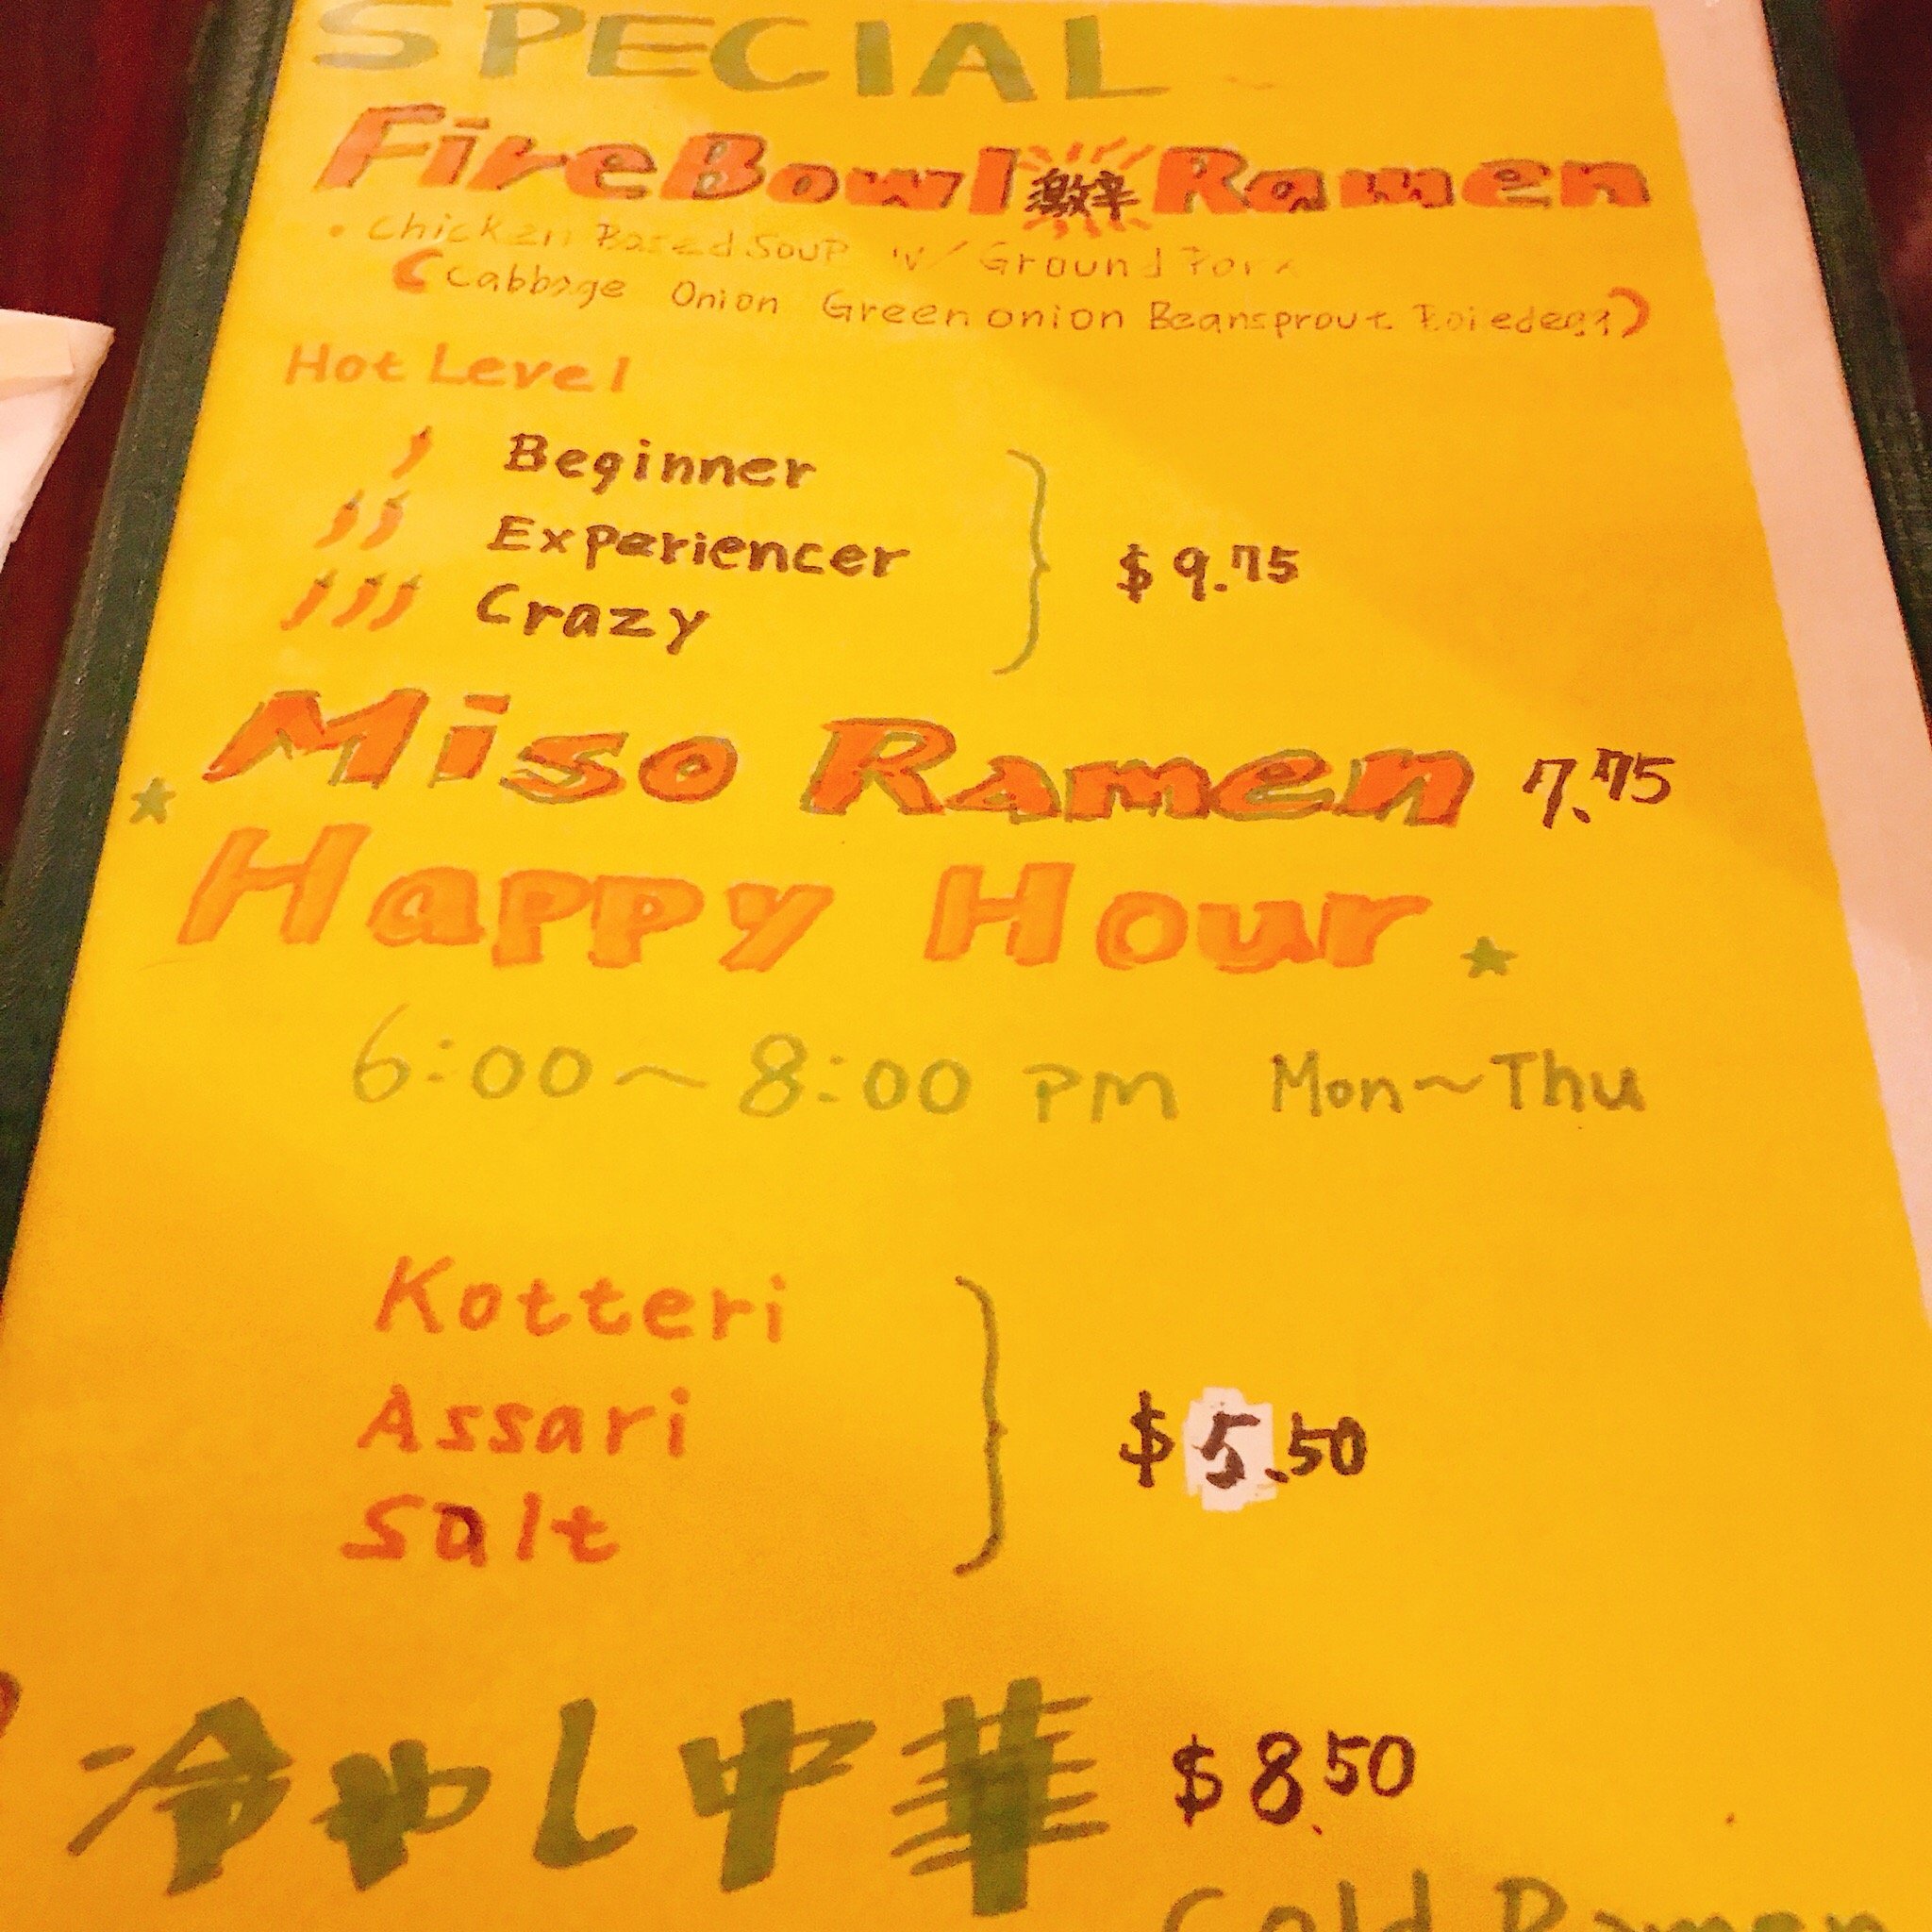 SPECIAL
FireBowl 激辛 Ramen
• Chicken Based Soup w/ Ground Pork
(Cabbage Onion Green onion Beansprout Boiedegg)
Hot Level
Beginner
Experiencer
Crazy
$9.75
Miso Ramen 7.75
★ Happy Hour ★
6:00~8:00 PM Mon~Thu
Kotteri
Assari
Salt
$5.50
冷やし中華 $8.50
Cold Ramen